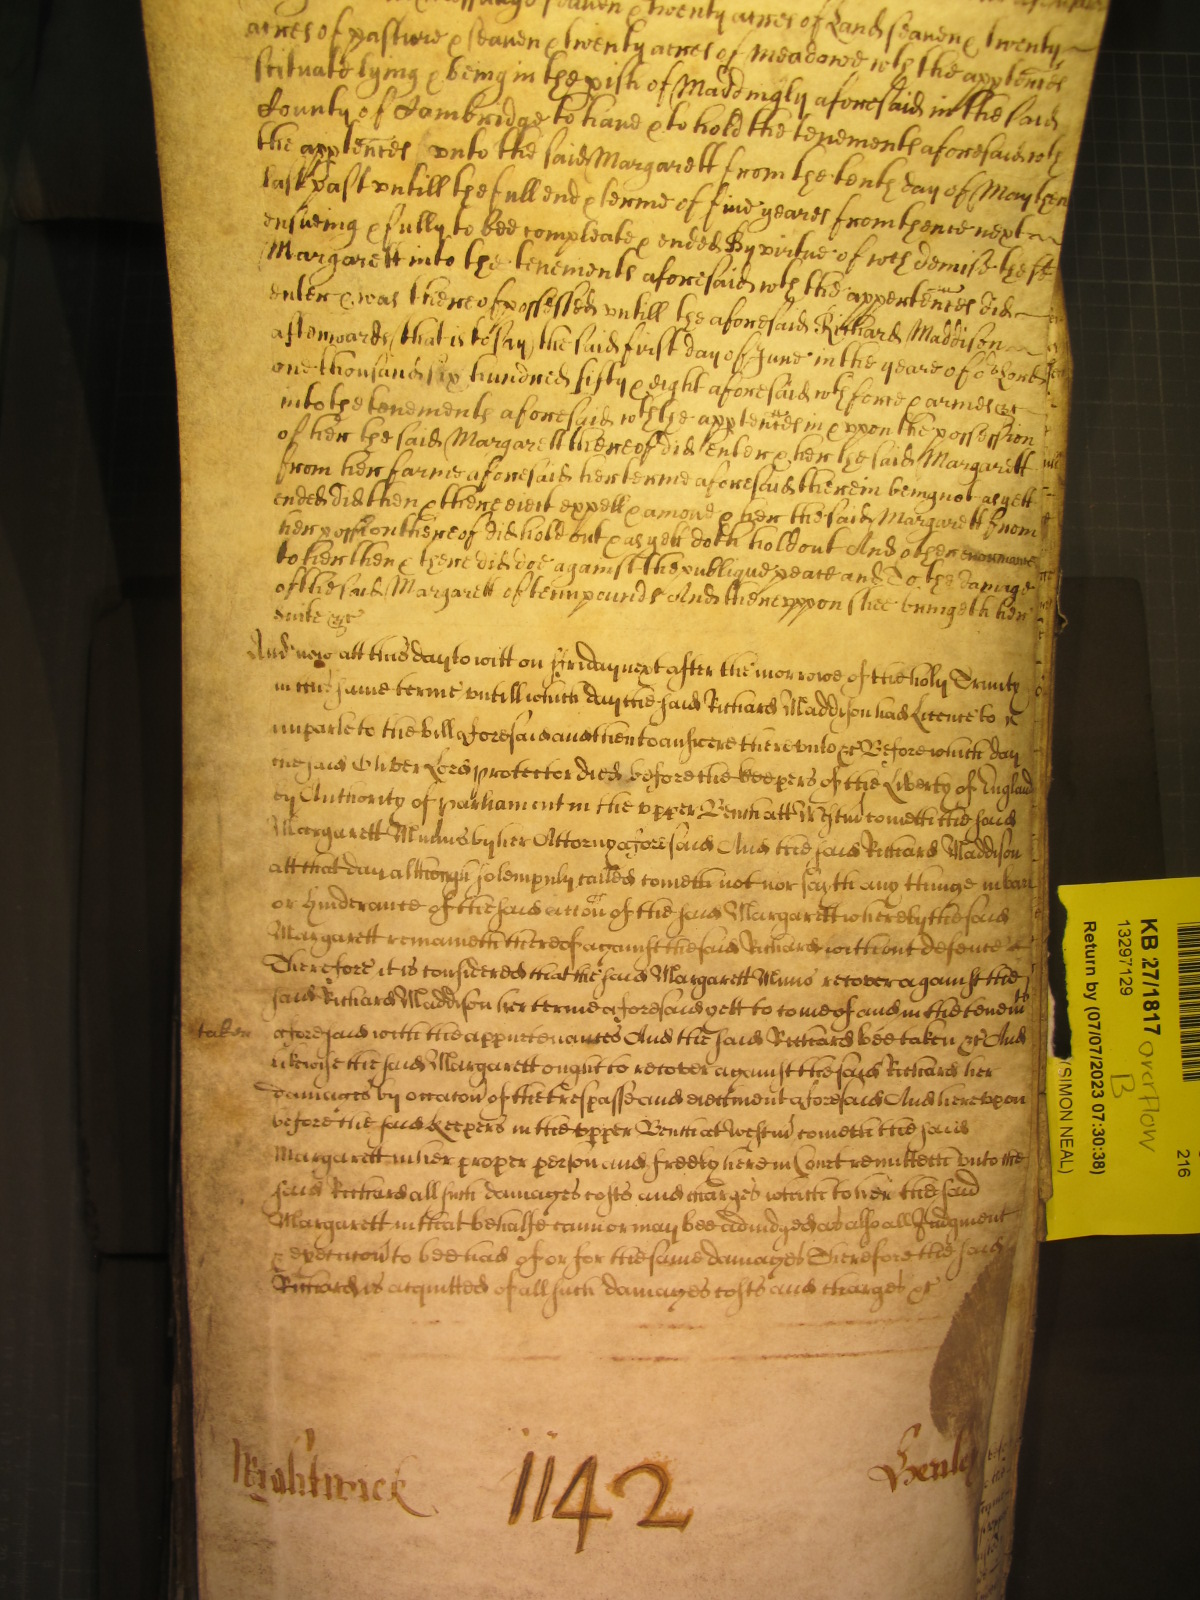 seaven & twenty acres of Land seaven & twenty
acres of pasture & seaven & twenty acres of meadowe wth the apptences
scituate lying & being in the pish of Maddingly aforesaid in the said
County of Cambridge To have & to hold the tenements aforesaid wth
the apptences unto the said Margarett from the tenth day of May then
last past untill the full end & terme of five yeares from thence next
ensueing & fully to bee compleate & ended By virtue of wch demise the sd
Margarett into the tenements aforesaid wth the appertences did
enter & was thereof possessed untill the aforesaid Richard Maddison
afterwards (that is to say) the said first day of June in the yeare of or Lord
one thousand six hundred fifty & eight aforesaid wth force & armes &c
into the tenements aforesaid wth the apptences in & uppon the possession
of her the said Margarett thereof did enter & her the said Margarett
from her farme aforesaid her terme aforesaid therein being not as yett
ended did then & there eiect expell & amove & her the said Margarett from
her possion thereof did hold out & as yett doth hold out And other enormous
to her then & there did doe against the publique peace and To the damage
of the said Margarett of tenn pounds And thereuppon shee bringeth her
suite &c
And now att this day to witt on Friday next after the morrowe of the holy Trinity
in this same terme untill which day the said Richard Maddison had Licence to
imparle to the bill aforesaid and then to answere thereunto &c Before which day
the said Oliver Lord Protector died before the Keepers of the Liberty of England
by Authority of Parliament in the upper Bench att Westm cometh the said
Margarett Munns by her Attorny aforesaid And the said Richard Maddison
att that day although solempnly called cometh not nor sayth any thinge in barr
or hinderance of the said accon of the said Margarett whereby the said
Margarett remaineth thereof against the said Richard without defence
Therefore it is considered that the said Margarett Munns recover against the
said Richard Maddison her terme aforesaid yett to come of and in the tenemts
taken aforesaid with the appurtenances And the said Richard bee taken &c And
likewise the said Margarett ought to recover against the said Richard her
damages by occacon of the trespasse and eiectment aforesaid And hereupon
before the said Keepers in the upper Bench at Westm cometh the said
Margarett in her proper person and freely here in Court remitteth unto the
said Richard all such damages costs and charges which to her the said
Margarett in that behalfe cann or may bee adiudged as also all Judgment
& execucon to bee had of or for the same damages Therefore the said
Richard is acquitted of all such damages costs and charges &c
Wightwick 1142 Henley
KB 27/1817 overflow
13297129 B
216
Return by (07/07/2023 07:30:38)
(SIMON NEAL)